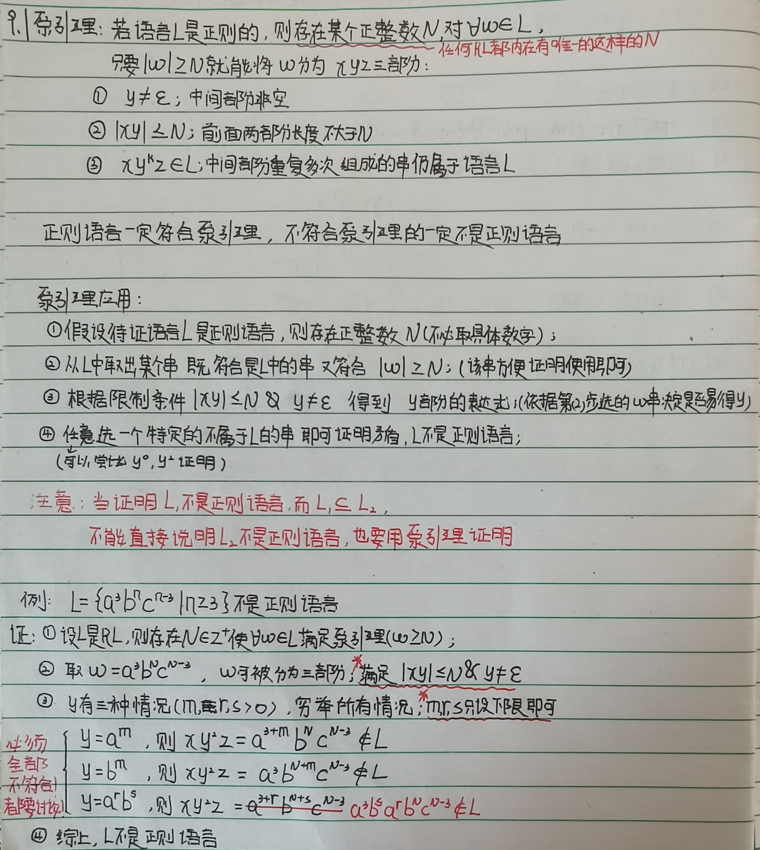 9.1 泵引理：若语言L是正则的，则存在某个正整数N，对∀w∈L，
任何RL都内在有唯一的这样的N
只要|w|≥N就能将w分为xyz三部分：
① y≠ε；中间部分非空
② |xy|≤N；前面两部分长度不大于N
③ xyᵏz∈L；中间部分重复多次组成的串仍属于语言L
正则语言一定符合泵引理，不符合泵引理的一定不是正则语言
泵引理应用：
①假设待证语言L是正则语言，则存在正整数N(不必取具体数字)；
②从L中取出某个串 既符合是L中的串 又符合 |w|≥N；(该串方便证明使用即可)
③ 根据限制条件 |xy|≤N & y≠ε 得到 y部分的表达式；(依据第(2)步选的w串决定是否易得y)
④ 任意选一个特定的不属于L的串 即可证明矛盾，L不是正则语言；
(可以尝试 y⁰, y² 证明)
注意：当证明L₁不是正则语言，而L₁⊆L₂，
不能直接说明L₂不是正则语言，也要用泵引理证明
例：L={a³bⁿcⁿ⁻³|n≥3}不是正则语言
证：①设L是RL，则存在N∈Z⁺使∀w∈L满足泵引理(w≥N)；
② 取w=a³bᴺcᴺ⁻³，w可被分为三部分，*满足|xy|≤N & y≠ε
③ y有三种情况(m, r,s>0)，穷举所有情况；*m,r,s只设下限即可
必须全部不符合！都要讨论
y=aᵐ，则xy²z=a³⁺ᵐbᴺcᴺ⁻³∉L
y=bᵐ，则xy²z=a³bᴺ⁺ᵐcᴺ⁻³∉L
y=aʳbˢ，则xy²z=a³⁺ʳbᴺ⁺ˢcᴺ⁻³ a³bˢaʳbᴺcᴺ⁻³∉L
④ 综上，L不是正则语言